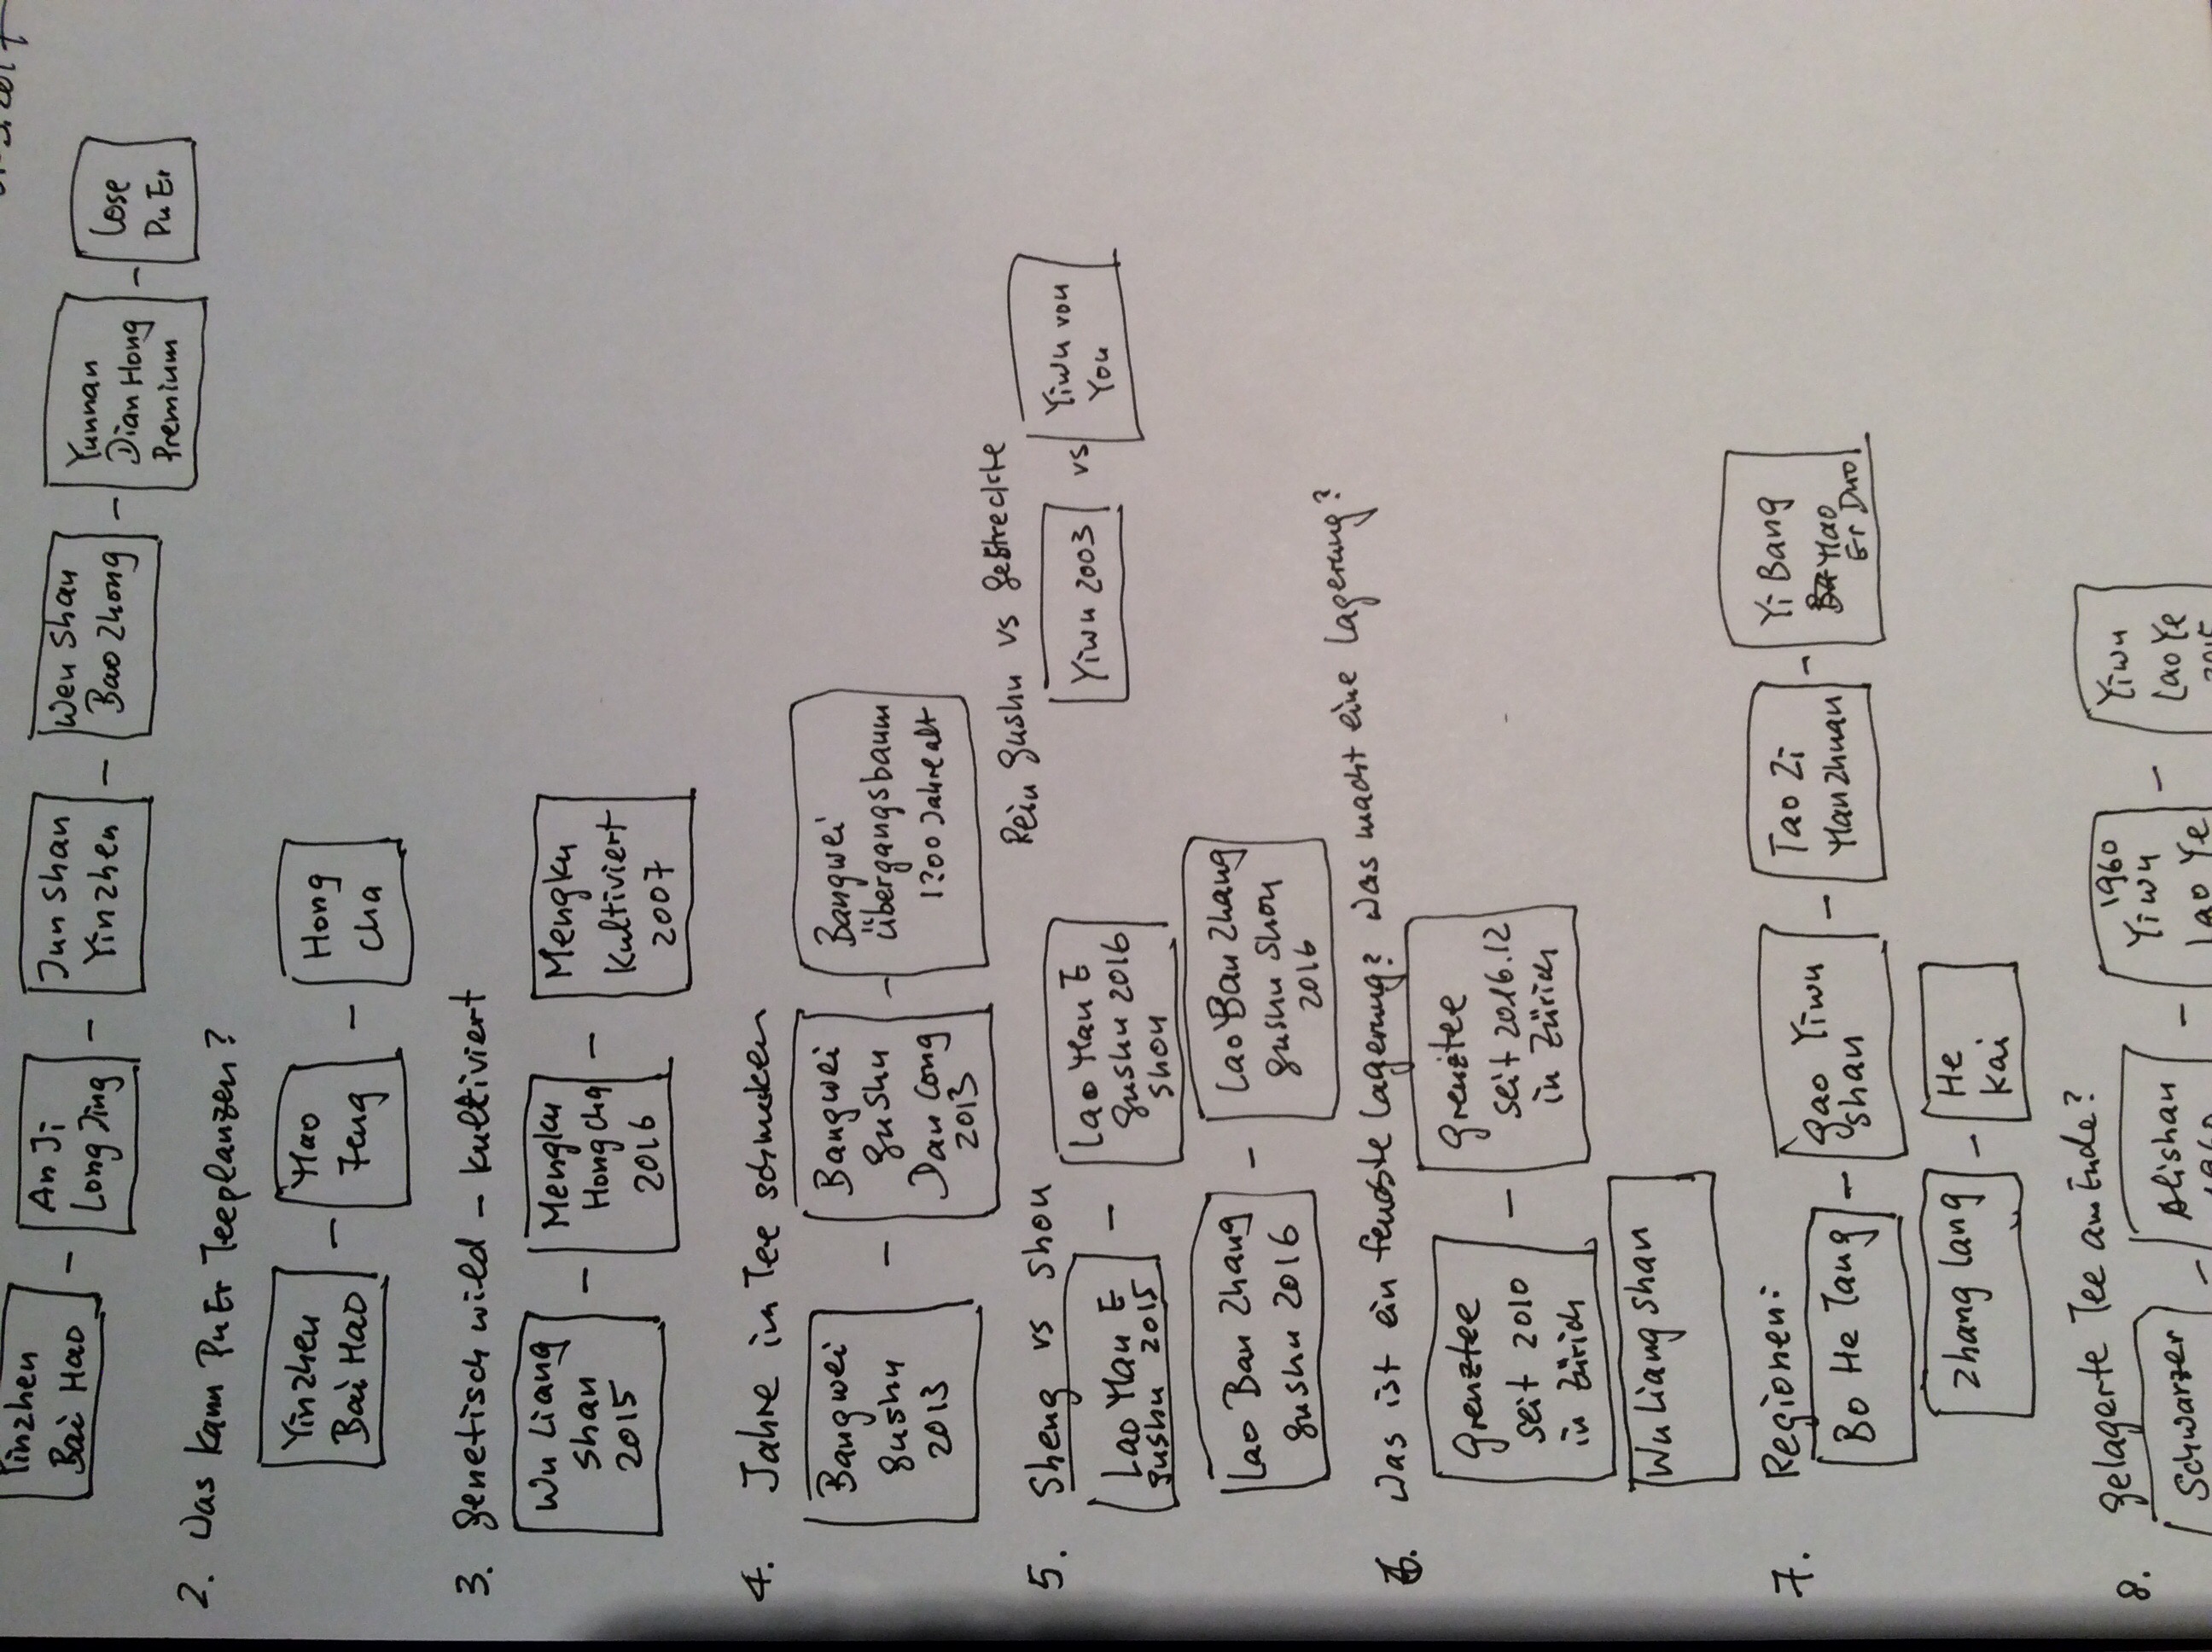 Yinzhen
Bai Hao
An Ji
Long Jing
Jun Shan
Yinzhen
Wen Shan
Bao Zhong
Yunnan
Dian Hong
Premium
Lose
Pu Er
2. Was kann Pu Er Teeplanzen?
Yinzhen
Bai Hao
Mao
Feng
Hong
cha
3. Genetisch wild - kultiviert
Wu Liang
Shan
2015
Mengku
Hong Cha
2016
Mengku
Kultiviert
2007
4. Jahre in Tee schmecken
Bangwei
Gushu
2013
Bangwei
Gu Shu
Dan Cong
2013
Bangwei
Übergangsbaum
1200 Jahre alt
5. Sheng vs Shou
Lao Man E
Gushu 2015
Lao Man E
Gushu 2016
Shou
Lao Ban Zhang
Gushu 2016
Lao Ban Zhang
Gushu Shou
2016
Rein Gushu vs Gestreckte
Yiwu 2003 vs
Yiwu von
You
6. Was ist ein feuchte Lagerung? Was macht eine Lagerung?
Grenztee
seit 2010
in Zürich
Grenztee
seit 2016.12
in Zürich
Wu Liang Shan
7. Regionen:
Bo He Tang
Gao Yiwu
Shan
Tao Zi
Man Zhuan
Yi Bang
Mao
Er Duo
Zhang Lang
He
Kai
8. Gelagerte Tee am Ende?
Schwarzer
Alishan
1960
1960
Yiwu
Lao Ye
Yiwu
Lao Ye
2015